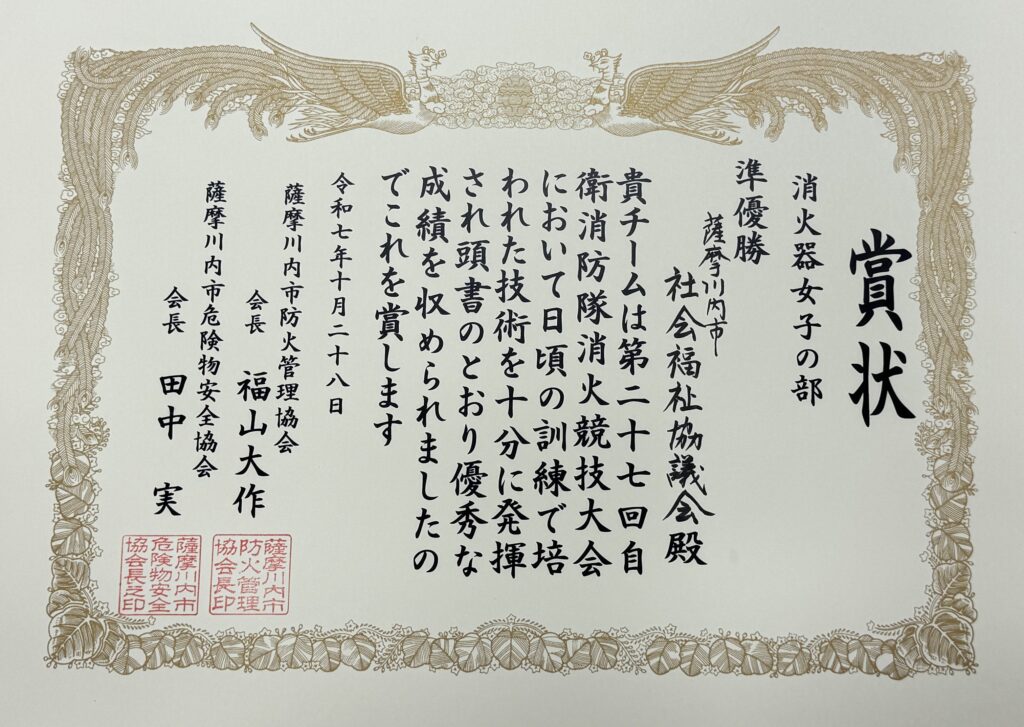 賞状
消火器女子の部
準優勝
薩摩川内市
社会福祉協議会殿
貴チームは第二十七回自
衛消防隊消火競技大会
において日頃の訓練で培
われた技術を十分に発揮
され頭書のとおり優秀な
成績を収められましたの
でこれを賞します
令和七年十月二十八日
薩摩川内市防火管理協会
会長 福山大作
薩摩川内市危険物安全協会
会長 田中 実
薩摩川内市
防火管理
協会長印
薩摩川内市
危険物安全
協会長之印